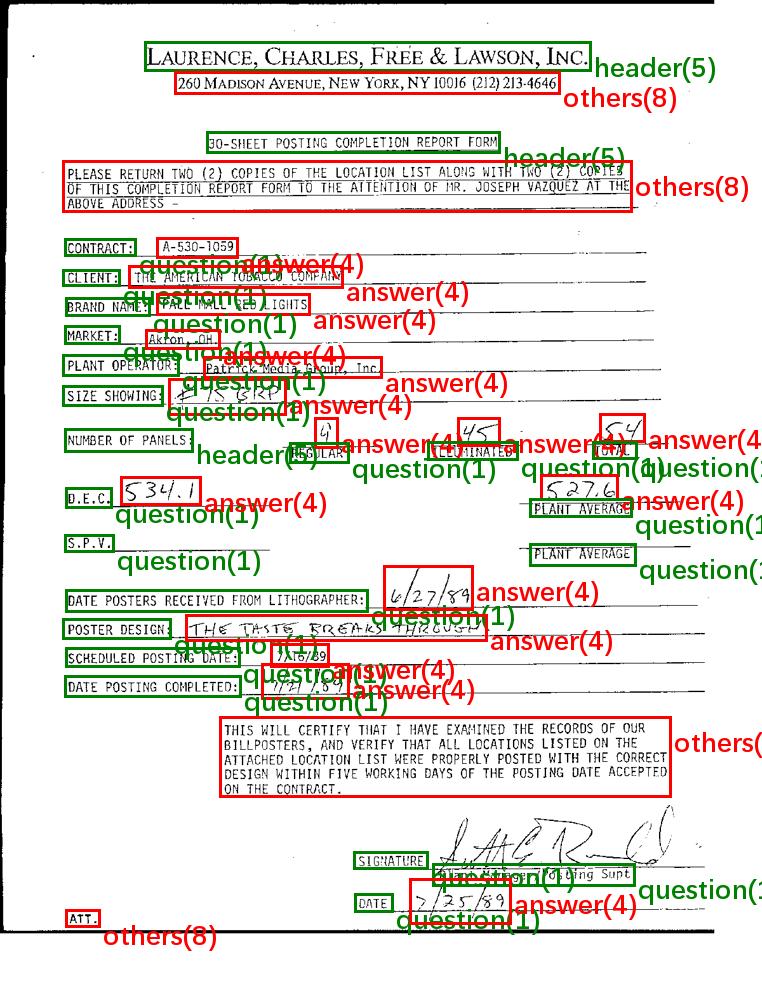 LAURENCE, CHARLES, FREE & LAWSON, INC. header(5)
260 MADISON AVENUE, NEW YORK, NY 10016 (212) 213-4646 others(8)
30-SHEET POSTING COMPLETION REPORT FORM header(5)
PLEASE RETURN TWO (2) COPIES OF THE LOCATION LIST ALONG WITH TWO (2) COPIES
OF THIS COMPLETION REPORT FORM TO THE ATTENTION OF MR. JOSEPH VAZQUEZ AT THE others(8)
ABOVE ADDRESS -
CONTRACT: A-530-1059 question(1) answer(4)
CLIENT: THE AMERICAN TOBACCO COMPANY question(1) answer(4)
BRAND NAME: PALL MALL RED LIGHTS question(1) answer(4)
MARKET: Akron, OH. question(1) answer(4)
PLANT OPERATOR: Patrick Media Group, Inc. question(1) answer(4)
SIZE SHOWING: # 75 GRP question(1) answer(4)
NUMBER OF PANELS: header(5) answer(4) 45 answer(4) 54 answer(4
REGULAR question(1) ILLUMINATED question(1) TOTAL question(1
D.E.C. 534.1 question(1) answer(4) 527.6 answer(4)
PLANT AVERAGE question(1
S.P.V. question(1) PLANT AVERAGE question(1
DATE POSTERS RECEIVED FROM LITHOGRAPHER: 6/27/89 question(1) answer(4)
POSTER DESIGN: THE TASTE BREAKS THROUGH question(1) answer(4)
SCHEDULED POSTING DATE: 7/16/89 question(1) answer(4)
DATE POSTING COMPLETED: 7/21/89 question(1) answer(4)
THIS WILL CERTIFY THAT I HAVE EXAMINED THE RECORDS OF OUR
BILLPOSTERS, AND VERIFY THAT ALL LOCATIONS LISTED ON THE others(
ATTACHED LOCATION LIST WERE PROPERLY POSTED WITH THE CORRECT
DESIGN WITHIN FIVE WORKING DAYS OF THE POSTING DATE ACCEPTED
ON THE CONTRACT.
SIGNATURE question(1)
Plant Manager/Posting Supt question(1
DATE 7/25/89 question(1) answer(4)
ATT. others(8)